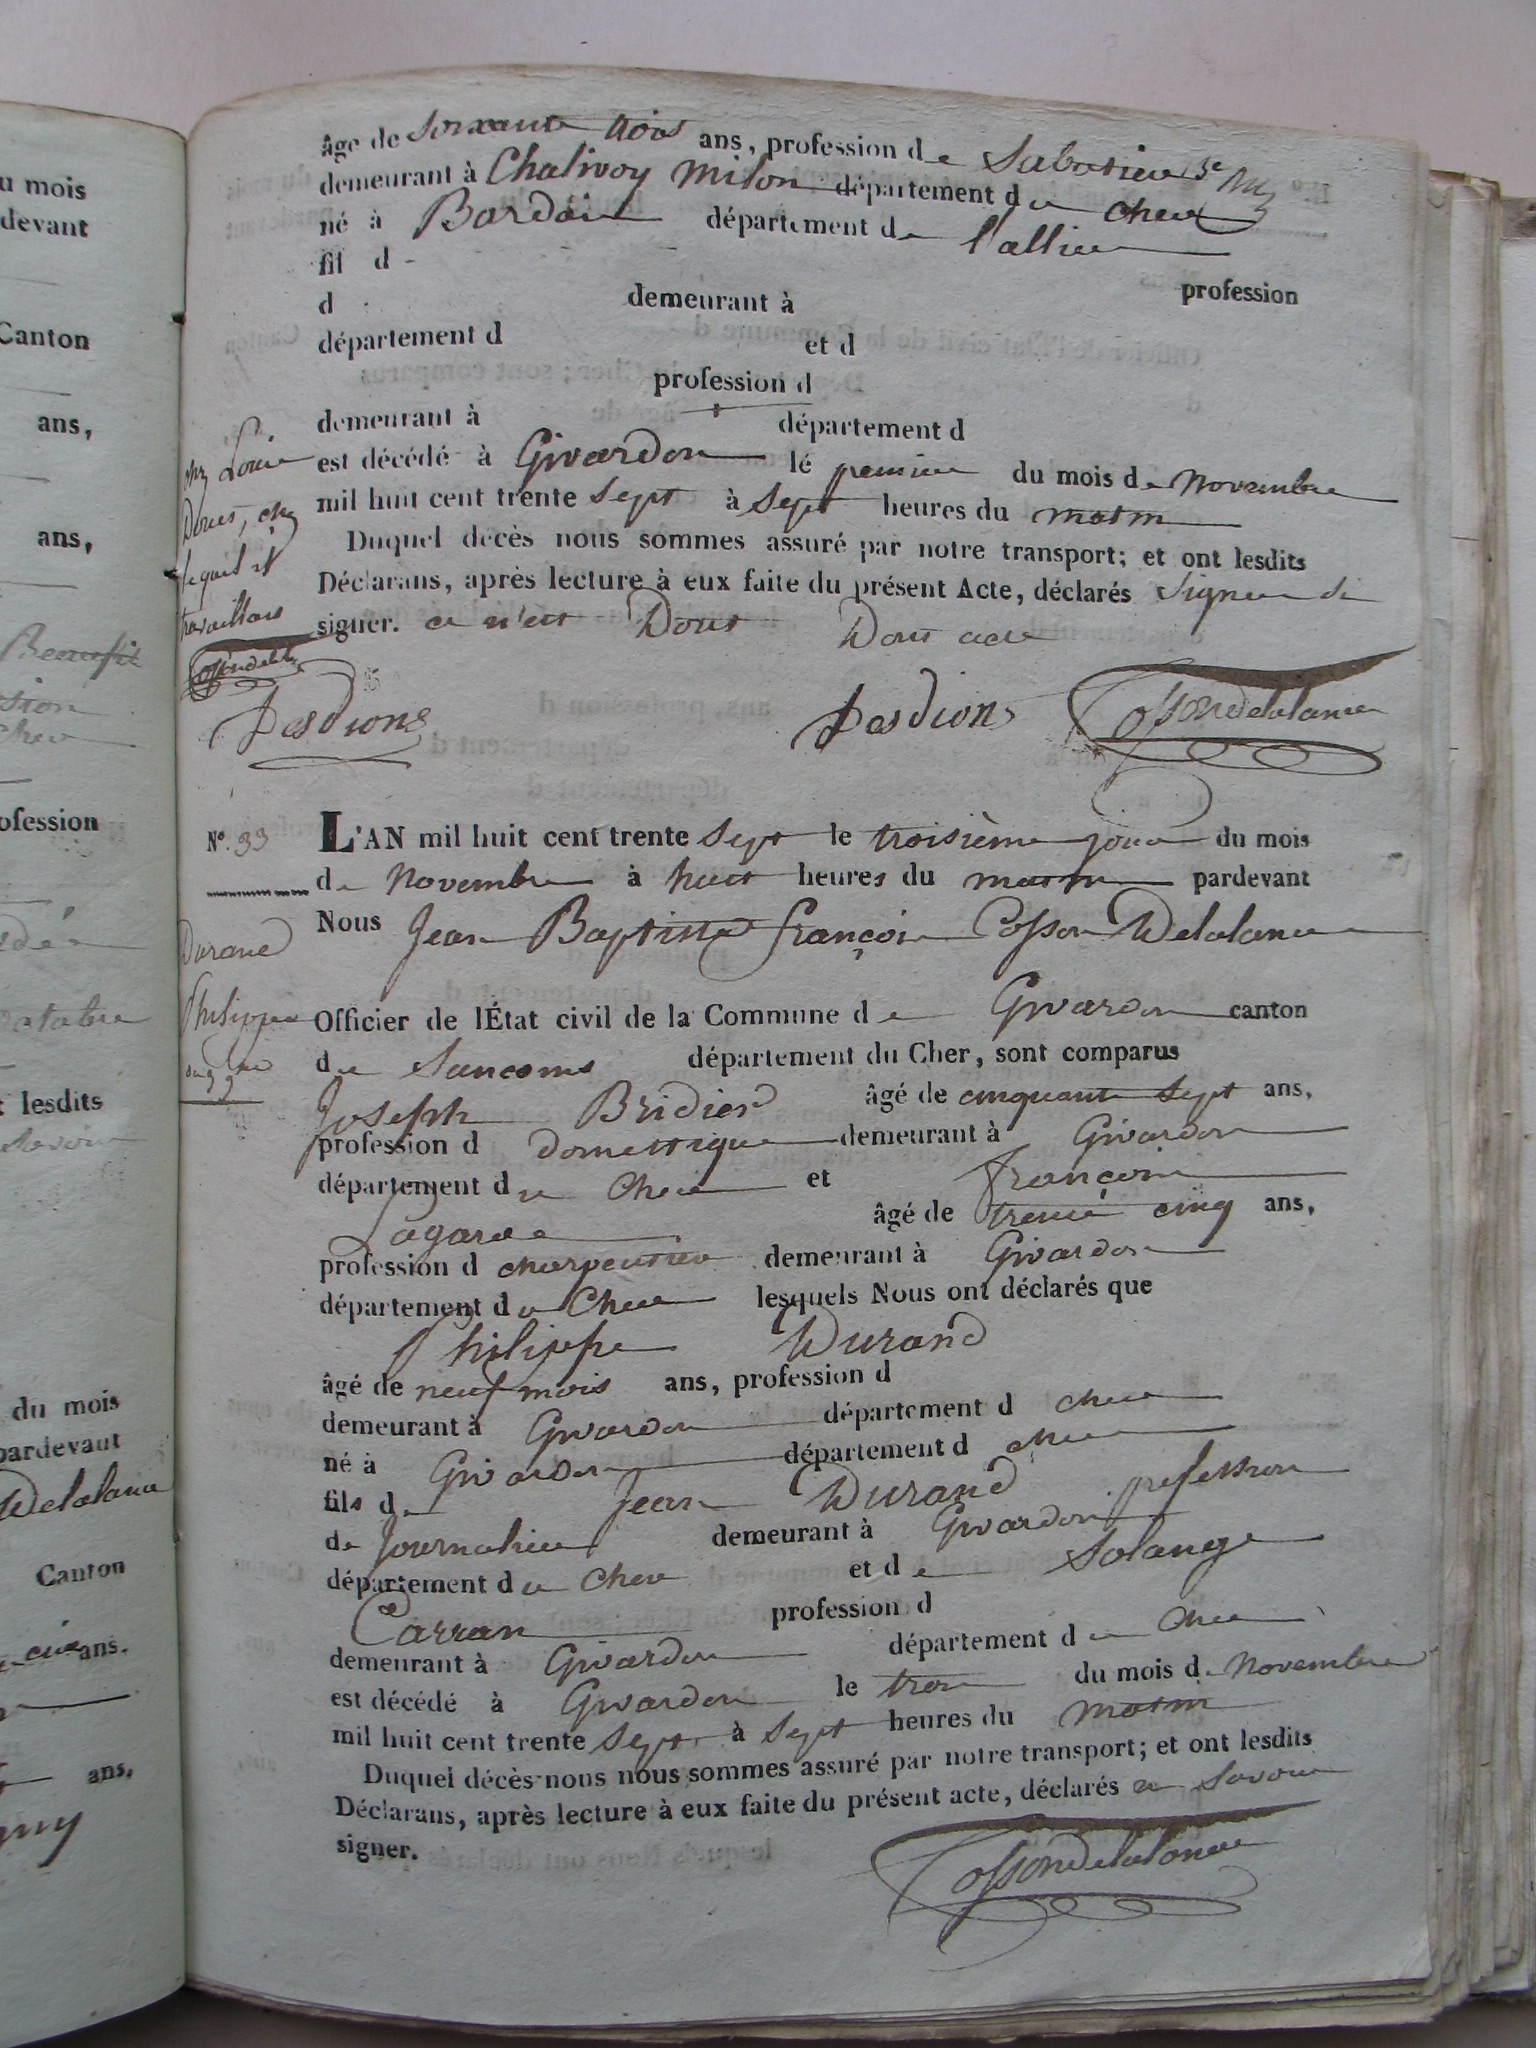 u mois
devant
Canton
ans,
ans,
sion
ofession
lesdits
du mois
pardevant
Delalance
Canton
ans.
ans.
âge de Soixante trois ans, profession de Sabotier
demeurant à Chalivoy Milon département du cher
né à Bardais département de l'allier
fil d
profession
d demeurant à
département d et d
profession d
demeurant à département d
est décédé à Givardon lé premier du mois de Novembre
mil huit cent trente Sept à Sept heures du matin
Duquel décès nous sommes assuré par notre transport; et ont lesdits
Déclarans, après lecture à eux faite du présent Acte, déclarés Signer
signer. ce n'est Dont acte
chez Louis
chez
lequel il
travaillais
Cossondelalance
Desdions Desdions Cossondelalance
N.º 33 L'AN mil huit cent trente Sept le troisième jour du mois
de Novembre à huit heures du matin pardevant
Nous Jean Baptiste françois Cosson Delalance
Durand
Philippe
Officier de lÉtat civil de la Commune de Givardon canton
de Sancoins département du Cher, sont comparus
Joseph Bridier âgé de cinquante Sept ans,
profession d domestique demeurant à Givardon
département du Cher et françois
Lagarde âgé de trente cinq ans,
profession d charpentier demeurant à Givardon
département du Cher lesquels Nous ont déclarés que
Philippe Durand
âgé de neuf mois ans, profession d
demeurant à Givardon département d cher
né à Givardon département d cher
fils de Jean Durand profession
de Journalier demeurant à Givardon
département du Cher et de Solange
Carran profession d
demeurant à Givardon département du Cher
est décédé à Givardon le trois du mois de Novembre
mil huit cent trente Sept à Sept heures du matin
Duquel décès nous nous sommes assuré par notre transport; et ont lesdits
Déclarans, après lecture à eux faite du présent acte, déclarés ne Savoir
signer.
Cossondelalance